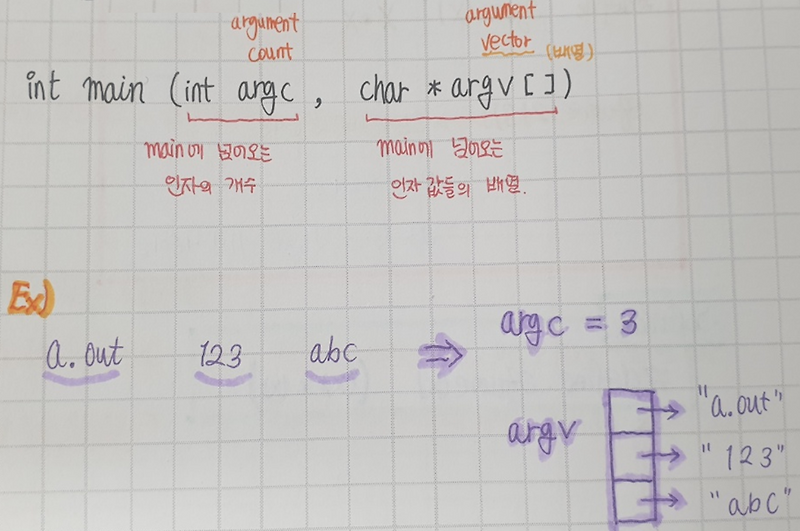 argument
count
argument
vector (배열)
int main (int argc , char * argv [ ])
main에 넘어오는
인자의 개수
main에 넘어오는
인자 값들의 배열.
Ex)
a.out 123 abc ⇒ argc = 3
argv
"a.out"
"123"
"abc"